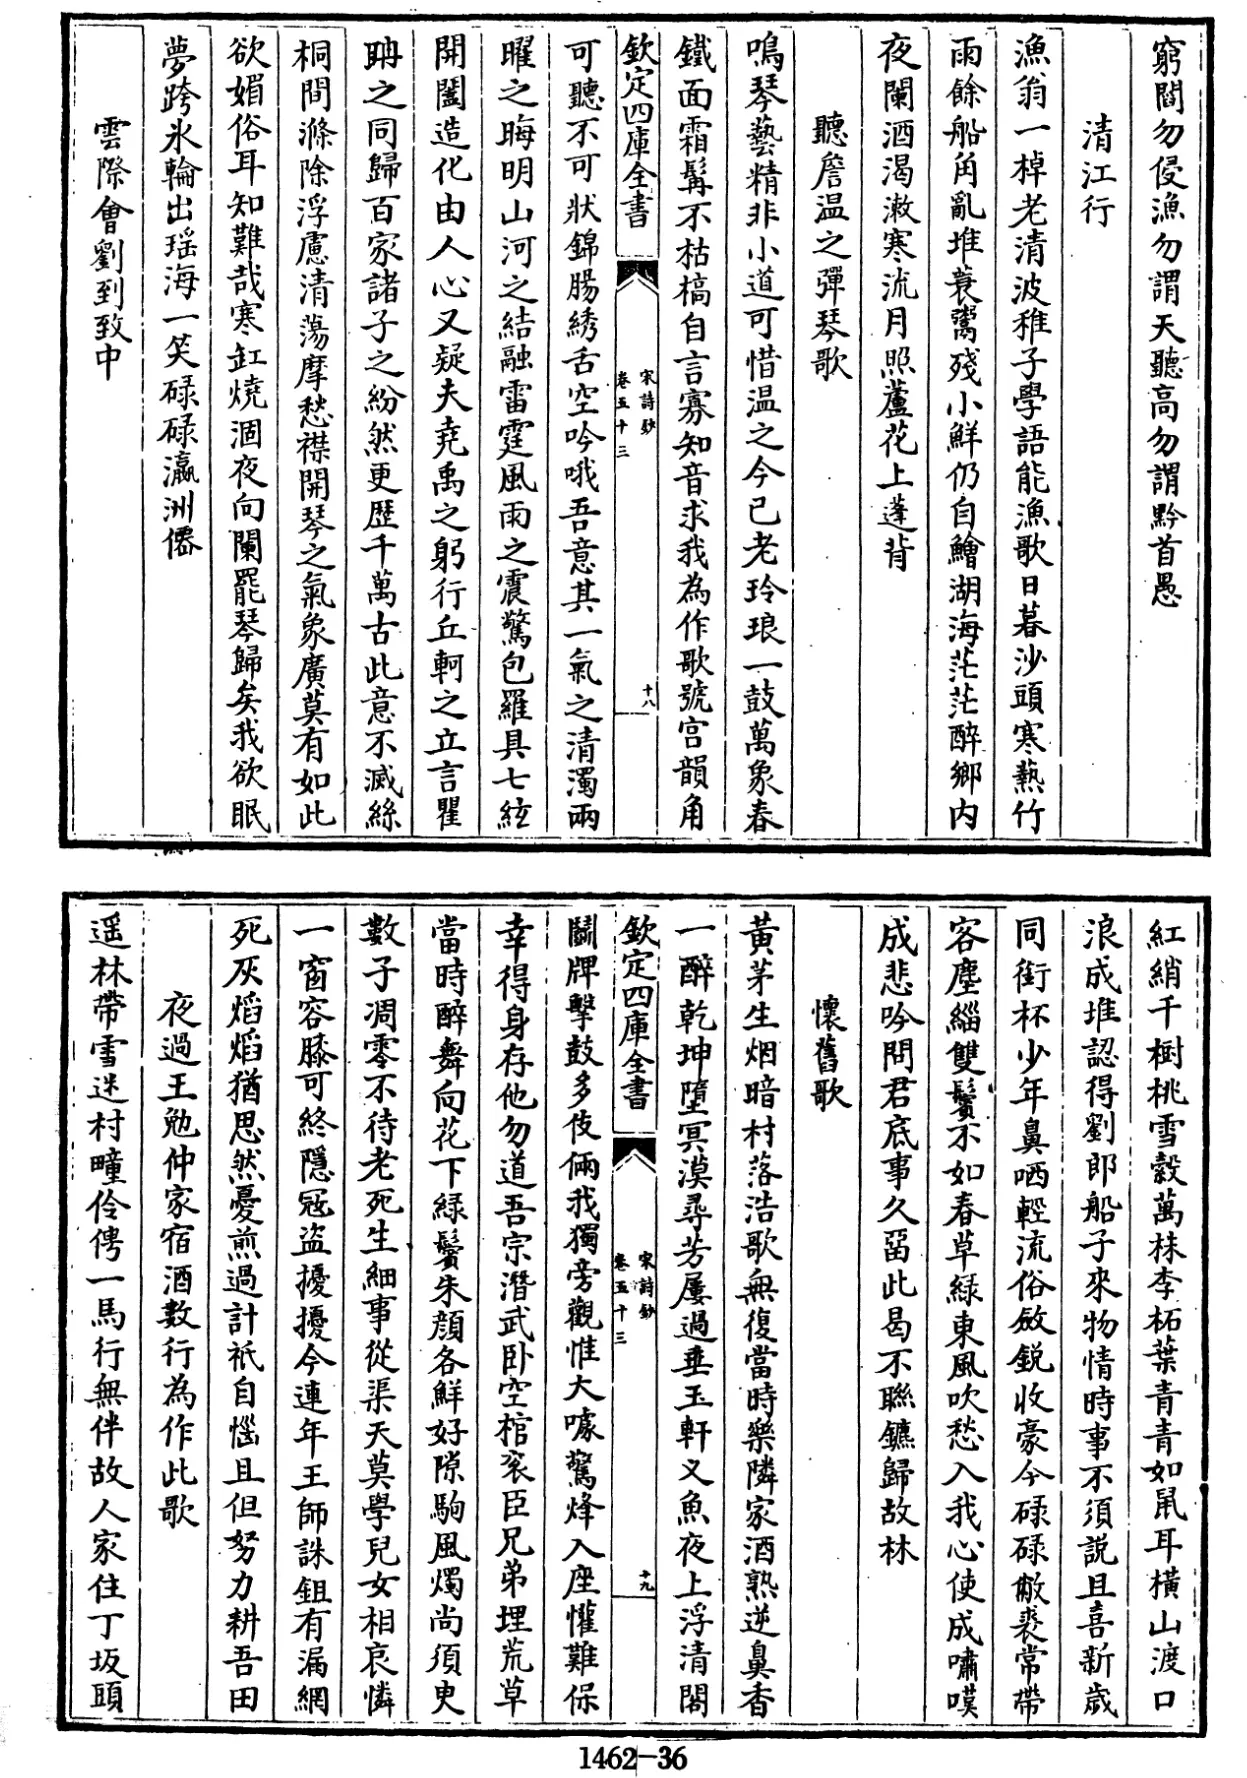 窮閻勿侵漁勿謂天聽高勿謂黔首愚
清江行
漁翁一棹老清波稚子學語能漁歌日暮沙頭寒爇竹
雨餘船角亂堆蓑鬻殘小鮮仍自鱠湖海茫茫醉鄉内
夜闌酒渴漱寒流月照蘆花上蓬背
聽詹温之彈琴歌
鳴琴藝精非小道可惜温之今已老玲琅一鼓萬象春
鐵面霜髯不枯槁自言寡知音求我為作歌號宫韻角
欽定四庫全書
宋詩鈔
卷五十三
十八
可聽不可狀錦腸綉舌空吟哦吾意其一氣之清濁兩
曜之晦明山河之結融雷霆風雨之震驚包羅具七絃
開闔造化由人心又疑夫堯禹之躬行丘軻之立言瞿
聃之同歸百家諸子之紛然更歷千萬古此意不滅絲
桐間滌除浮慮清蕩摩愁襟開琴之氣象廣莫有如此
欲媚俗耳知難哉寒缸燒涸夜向闌罷琴歸矣我欲眠
夢跨氷輪出瑶海一笑碌碌瀛洲僊
雲際會劉到致中
紅綃千樹桃雪縠萬株李柘葉青青如鼠耳橫山渡口
浪成堆認得劉郎船子來物情時事不須說且喜新歲
同銜杯少年鼻哂輕流俗斂銳收豪今碌碌敝裘常帶
客塵緇雙鬢不如春草緑東風吹愁入我心使成嘯嘆
成悲吟問君底事久留此曷不聯鑣歸故林
懷舊歌
黄茅生烟暗村落浩歌無復當時樂隣家酒熟逆鼻香
一醉乾坤墮冥漠尋芳屢過垂玉軒叉魚夜上浮清閣
欽定四庫全書
宋詩鈔
卷五十三
十九
鬭牌擊鼓多伎倆我獨旁觀惟大噱驚烽入座懽難保
幸得身存他勿道吾宗潛武卧空棺衮臣兄弟埋荒草
當時醉舞向花下緑鬢朱顔各鮮好隙駒風燭尚須臾
數子凋零不待老死生細事從渠天莫學兒女相哀憐
一窗容膝可終隱冦盜擾擾今連年王師誅鉏有漏網
死灰焰焰猶思然憂煎過計祇自惱且但努力耕吾田
夜過王勉仲家宿酒數行為作此歌
遥林帶雪迷村疃伶俜一馬行無伴故人家住丁坂頭
1462-36